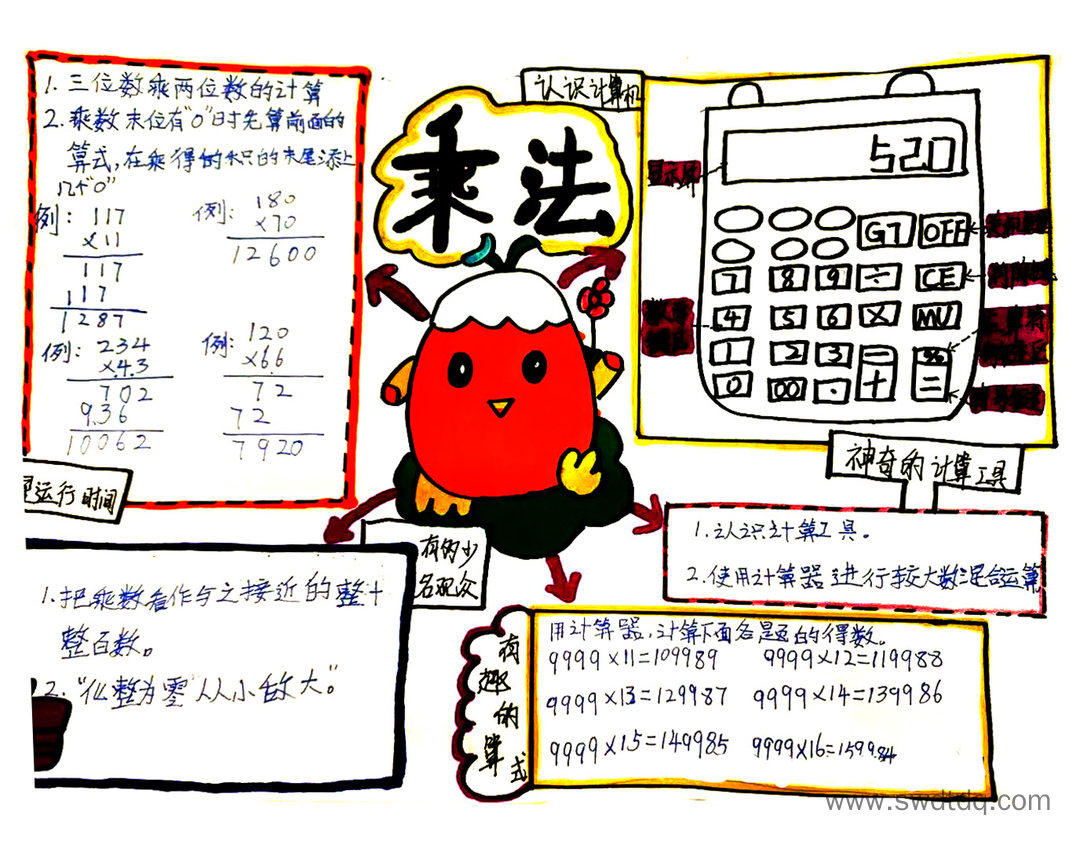 1. 三位数乘两位数的计算
2. 乘数末位有"0"时先算前面的
算式，在乘得的积的末尾添上
几个"0"
例： 117
×11
117
117
1287
例： 180
×70
12600
例： 234
×43
702
936
10062
例： 120
×66
72
72
7920
乘法
认识计算机
520
显示屏
GT OFF
7 8 9 ÷ CE
4 5 6 × MU
1 2 3 - %
0 00 · + =
神奇的计算工具
1. 认识计算工具。
2. 使用计算器进行较大数混合运算
运行时间
1. 把乘数看作与之接近的整十
整百数。
2. "化整为零从小做大"。
有的少
有趣的算式
用计算器，计算下面各题的得数。
9999×11=109989 9999×12=119988
9999×13=129987 9999×14=139986
9999×15=149985 9999×16=159984
www.swdtdq.com